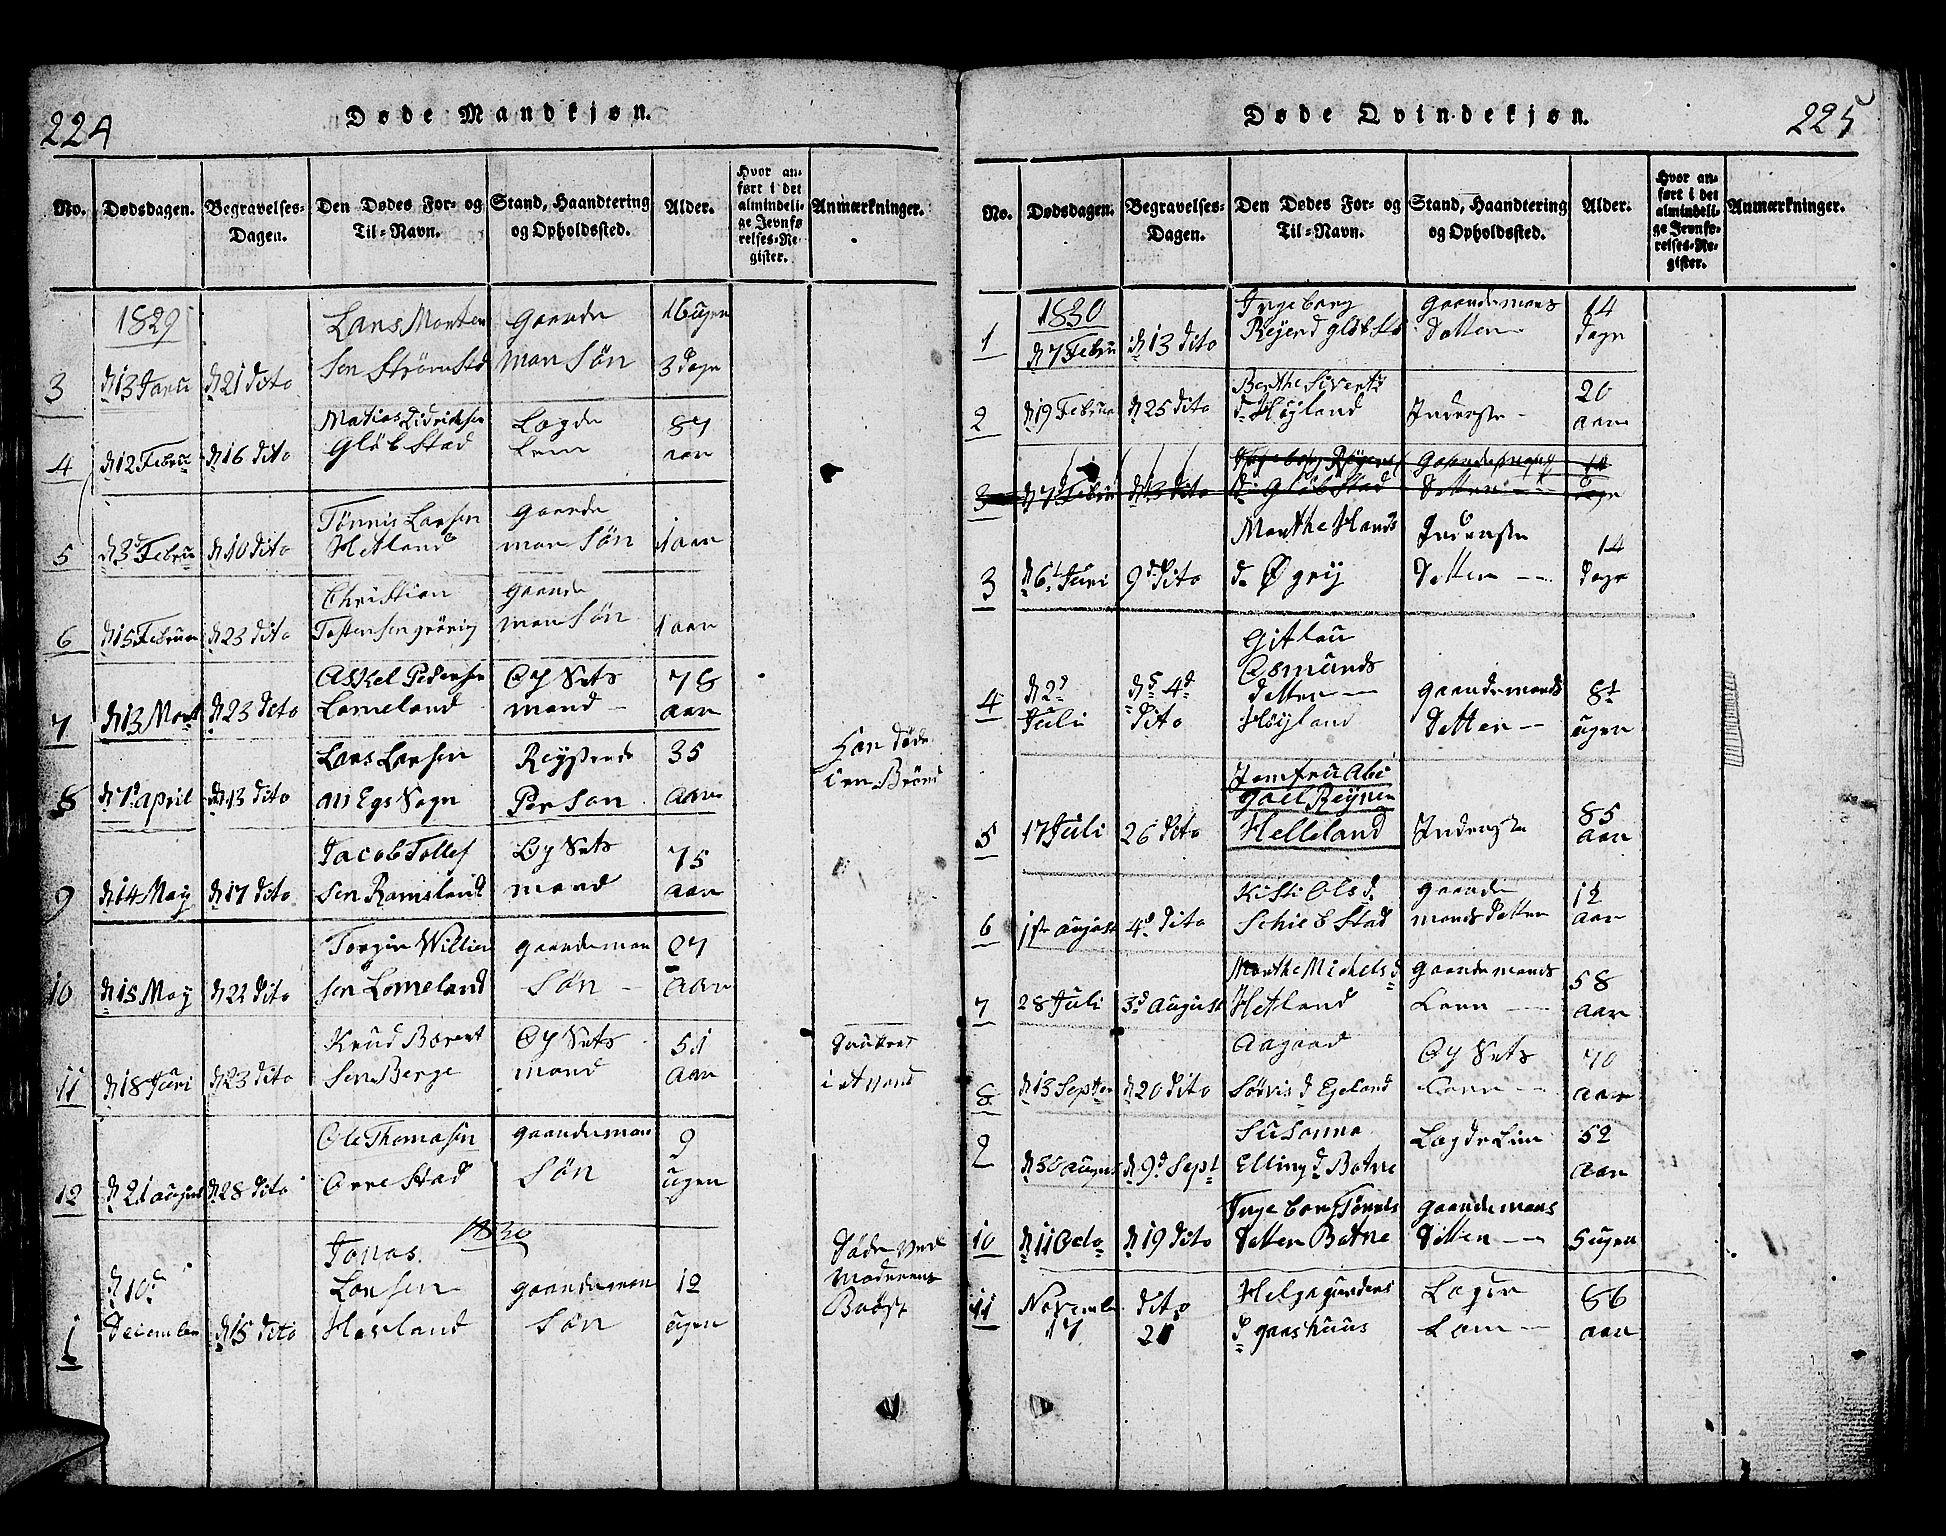 224
Døde Mandkjøn.
No.
Dødsdagen.
Begravelses-
Dagen.
Den Dødes For- og
Til-Navn.
Stand, Haandtering
og Opholdssted.
Alder.
Hvor an-
ført i det
almindeli-
ge Jevnfø
relses-Re-
gister.
Anmærkninger.
1829
3
d 13 Janu
d 21 dito
Lars Morten
Sen Strømstad
Gaarde
man Søn
16 ugen
3 dage
4
d 12 Febru
d 16 dito
Matias Didricksen
Gløbstad
Lægde
Lem
87
aar
5
d 3 Febru
d 10 dito
Tønnis Larsen
Hetland
Gaarde
man Søn
1 aar
6
d 15 Februar
d 23 dito
Christian
Tostensen
Gaarde
man Søn
1 aar
7
d 13 Mart
d 23 dito
Askel Pedersen
Lomeland
Oy Sets
mand
78
aar
8
d 1 april
d 13 dito
Lars Larsen
Sogn
Reysende
Person
35
aar
Han døde
i en Brønd
9
d 14 May
d 17 dito
Jacob Tollef
sen Ramsland
Oy Sets
mand
75
aar
10
d 15 May
d 22 dito
Torger Willim
sen Lomeland
gaardeman
Søn
27
aar
11
d 18 Juni
d 23 dito
Knud Barent
Sen Berge
Oy Sets
mand
51
aar
i et vand
12
d 21 august
d 28 dito
Ole Thomasen
Orrestad
gaardeman
Søn
9
ugen
1830
1
d 10
December
d 15 dito
Jonas
Larsen
Havland
gaardeman
Søn
12
ugen
Døde ved
Moderens
Bryst
Døde Qvindekjøn.
225
No.
Dødsdagen.
Begravelses-
Dagen.
Den Dødes For- og
Til-Navn.
Stand, Haandtering
og Opholdssted.
Alder.
Hvor an-
ført i det
almindeli-
ge Jevnfø-
relses-Re-
gister.
Anmærkninger.
1830
1
d 7 Febru
d 13 dito
Ingeborg
Reyerd gløbstd
gaardemans
Datter
14
dage
2
d 19 Februar
d 25 dito
Berthe Siverts
d. Høyland
Inderste
20
aar
3
d 7 Febru
d 13 dito
Ingeborg Reyers
d. Gløbstad
Gaardemans
Datter
14
dage
3
d 6 Juni
9 dito
Marthe Hans
d. Øgrey
Inderste
Datter
14
dage
4
d 2
Juli
d 4
dito
Gitlau
Osmunds
datter
Høyland
gaardemands
Datter
8
ugen
5
17 Juli
26 dito
Jomfru Abi
gael Reyner
Helleland
Inderste
85
aar
6
1st august
4 dito
Kisti Ols d.
Schiebstad
gaarde
mands datter
12
aar
7
28 Juli
3 august
Marthe Michels d
Hetland
gaardemands
58
aar
8
d 13 Septem
d 20 dito
Aagaad
d Egeland
Oy Sets
70
aar
2
d 30 august
d 9 Sept
Susanna
Elling d Botne
Lægde Lim
52
aar
10
d 11 Octo
d 19 dito
Ingeborg Tønnes
datter Botne
gaardemans
datter
5 ugen
11
Novemb
17
dito
21
Helga gunders
d gaashuus
Lem
86
aar